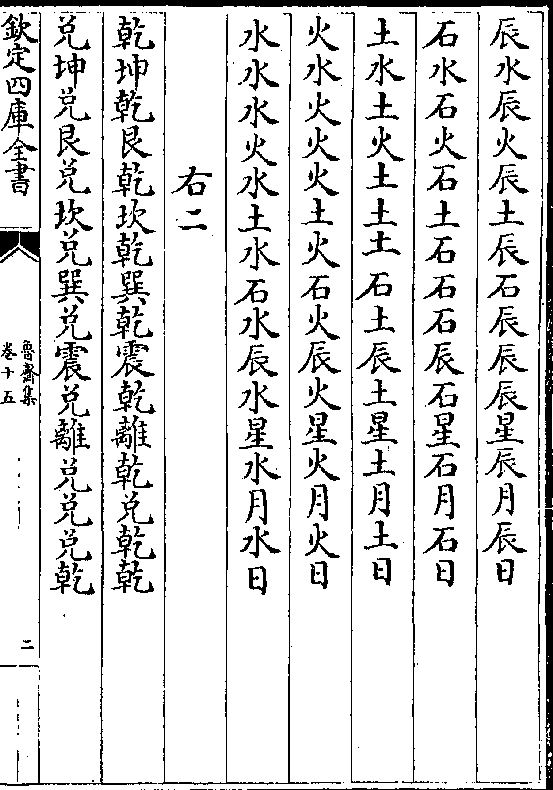 辰水辰火辰土辰石辰辰辰星辰月辰日
石水石火石土石石石辰石星石月石日
土水土火土土土石土辰土星土月土日
火水火火火土火石火辰火星火月火日
水水水火水土水石水辰水星水月水日
右二
乾坤乾艮乾坎乾巽乾震乾離乾兑乾乾
兑坤兑艮兑坎兑巽兑震兑離兑兑兑乾
欽定四庫全書
魯齋集
卷十五
二